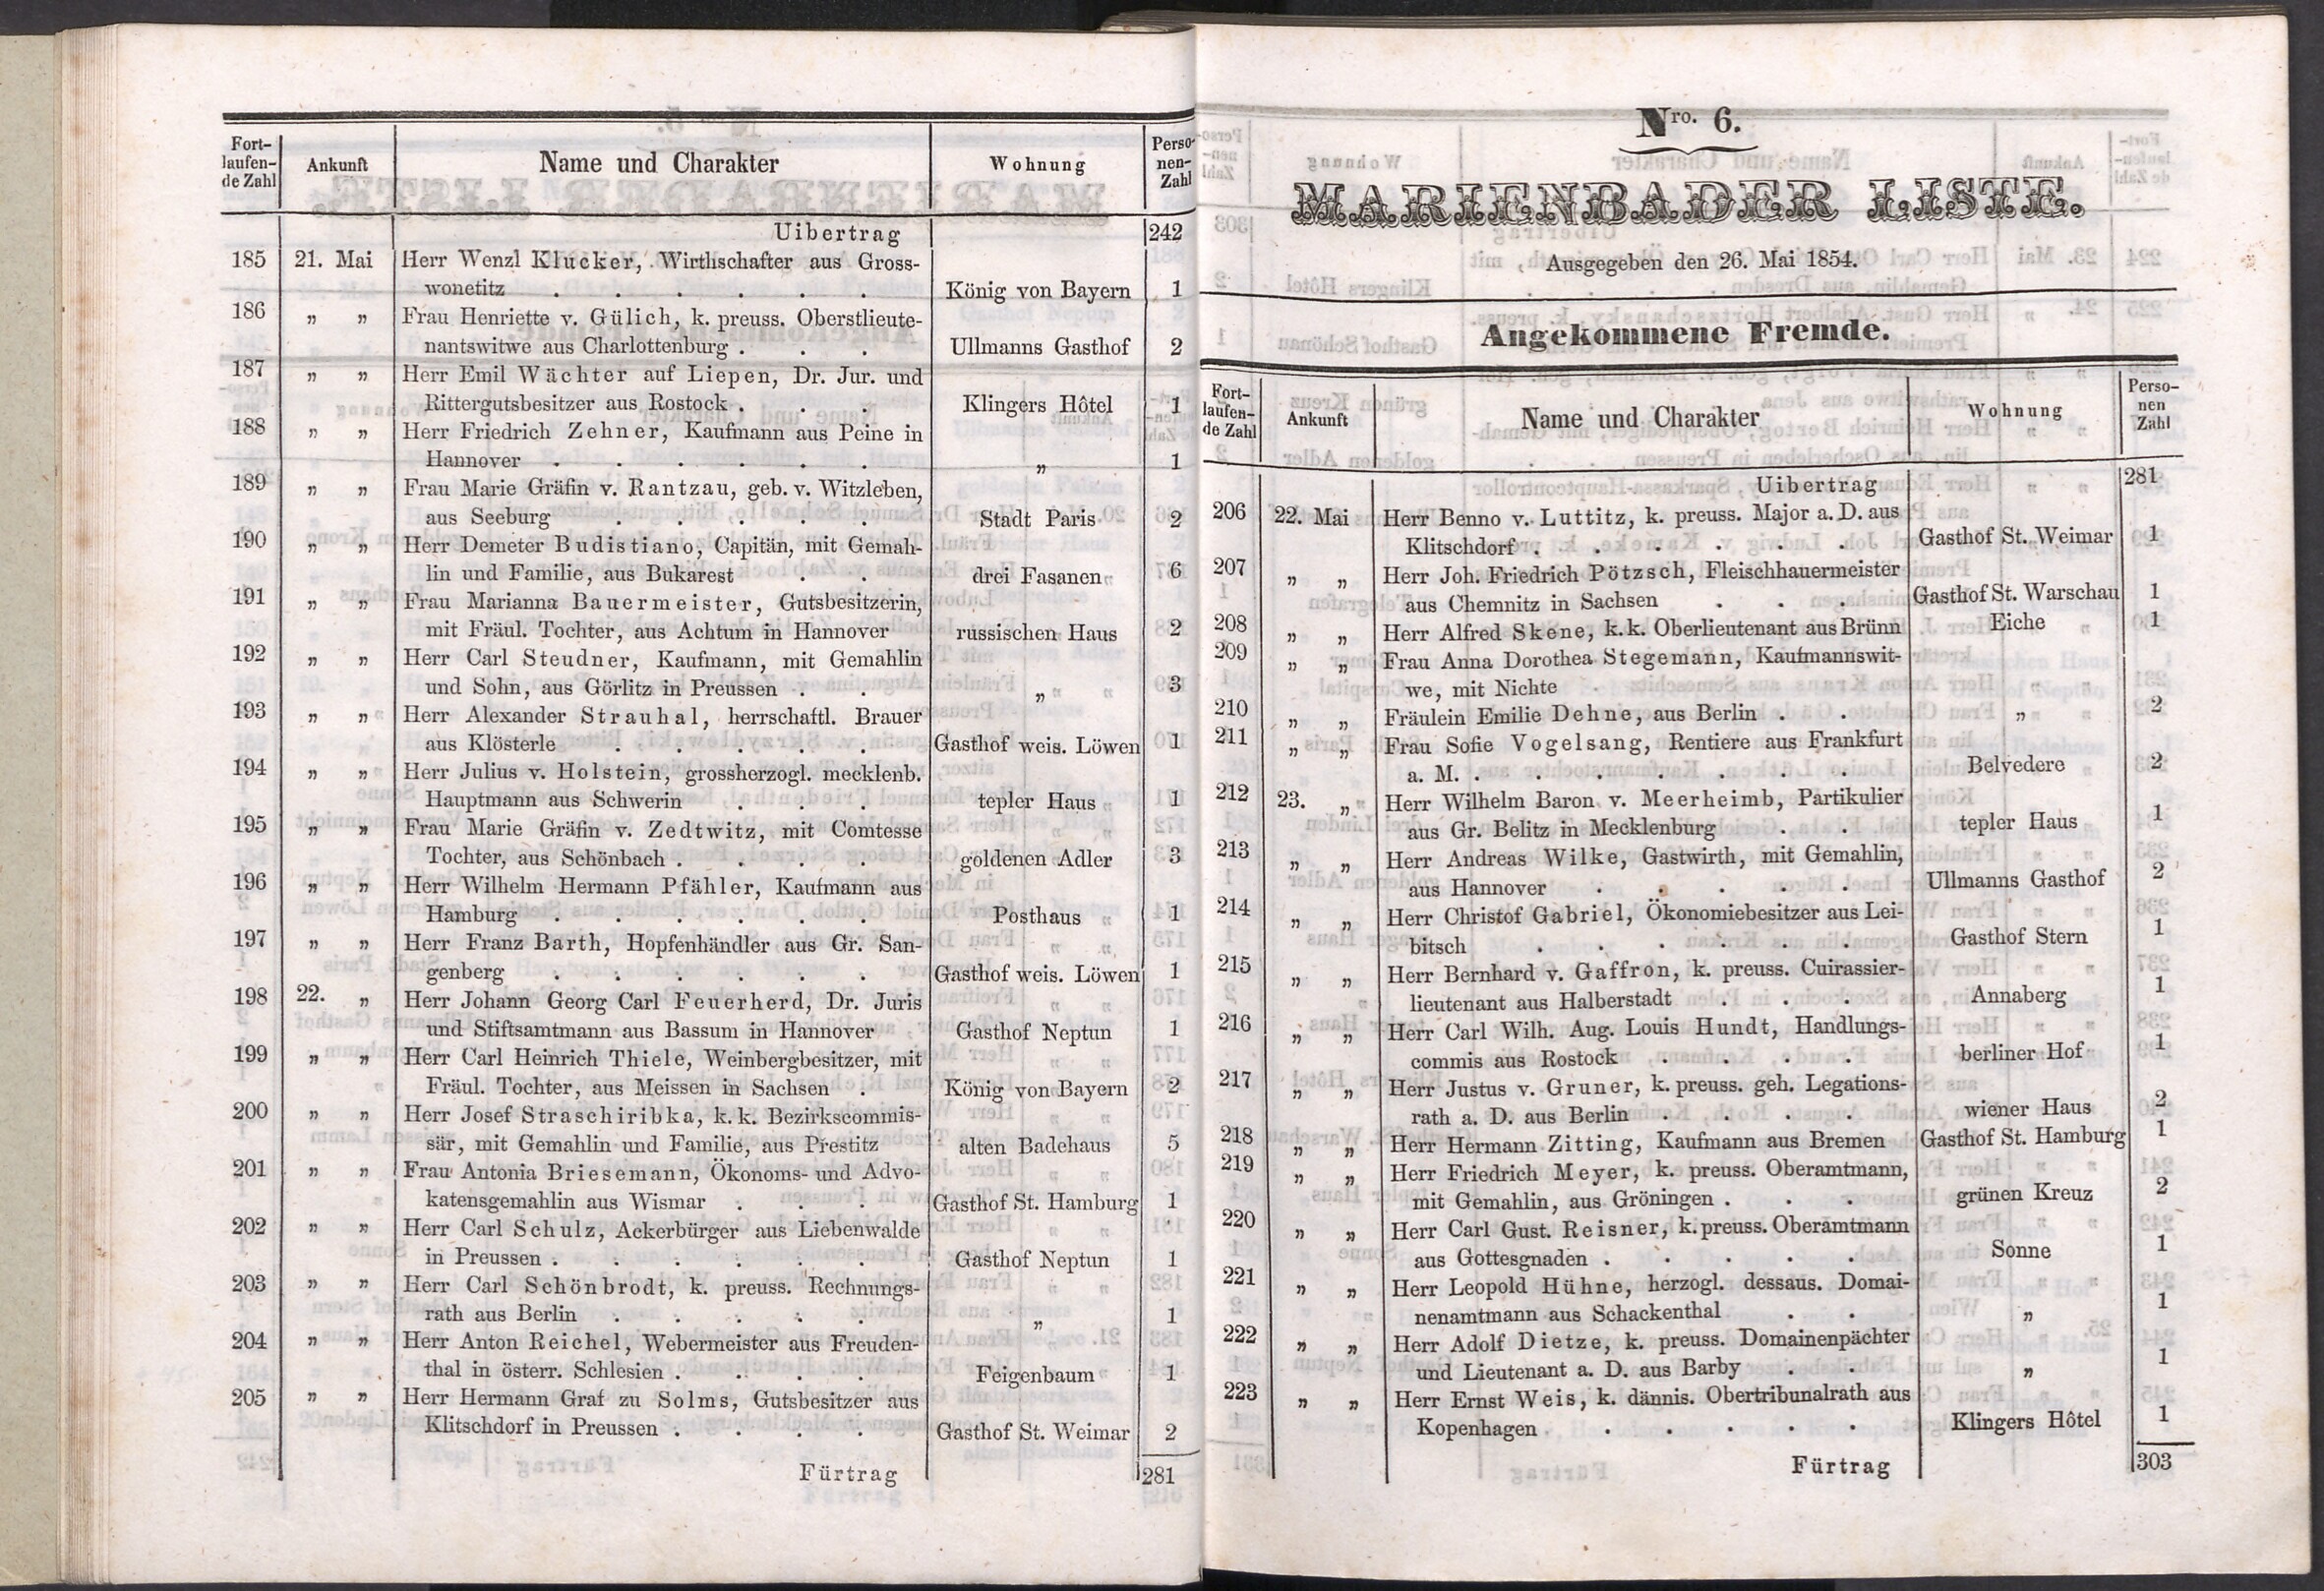 Fort-
laufen-
de Zahl
Ankunft
Name und Charakter
Wohnung
Perso-
nen-
Zahl
Uibertrag 242
185 21. Mai Herr Wenzl Klucker, Wirthschafter aus Gross-
wonetitz . . . . . . König von Bayern 1
186 „ „ Frau Henriette v. Gülich, k. preuss. Oberstlieute-
nantswitwe aus Charlottenburg . . . Ullmanns Gasthof 2
187 „ „ Herr Emil Wächter auf Liepen, Dr. Jur. und
Rittergutsbesitzer aus Rostock . . . Klingers Hôtel 1
188 „ „ Herr Friedrich Zehner, Kaufmann aus Peine in
Hannover . . . . . . „ 1
189 „ „ Frau Marie Gräfin v. Rantzau, geb. v. Witzleben,
aus Seeburg . . . . . Stadt Paris 2
190 „ „ Herr Demeter Budistiano, Capitän, mit Gemah-
lin und Familie, aus Bukarest . . drei Fasanen 6
191 „ „ Frau Marianna Bauermeister, Gutsbesitzerin,
mit Fräul. Tochter, aus Achtum in Hannover russischen Haus 2
192 „ „ Herr Carl Steudner, Kaufmann, mit Gemahlin
und Sohn, aus Görlitz in Preussen . . „ 3
193 „ „ Herr Alexander Strauhal, herrschaftl. Brauer
aus Klösterle . . . . . Gasthof weis. Löwen 1
194 „ „ Herr Julius v. Holstein, grossherzogl. mecklenb.
Hauptmann aus Schwerin . . . tepler Haus 1
195 „ „ Frau Marie Gräfin v. Zedtwitz, mit Comtesse
Tochter, aus Schönbach . . . . goldenen Adler 3
196 „ „ Herr Wilhelm Hermann Pfähler, Kaufmann aus
Hamburg . . . . . . Posthaus 1
197 „ „ Herr Franz Barth, Hopfenhändler aus Gr. San-
genberg . . . . . . Gasthof weis. Löwen 1
198 22. „ Herr Johann Georg Carl Feuerherd, Dr. Juris
und Stiftsamtmann aus Bassum in Hannover Gasthof Neptun 1
199 „ „ Herr Carl Heinrich Thiele, Weinbergbesitzer, mit
Fräul. Tochter, aus Meissen in Sachsen . König von Bayern 2
200 „ „ Herr Josef Straschiribka, k. k. Bezirkscommis-
sär, mit Gemahlin und Familie, aus Prestitz alten Badehaus 5
201 „ „ Frau Antonia Briesemann, Ökonoms- und Advo-
katensgemahlin aus Wismar . . . Gasthof St. Hamburg 1
202 „ „ Herr Carl Schulz, Ackerbürger aus Liebenwalde
in Preussen . . . . . . Gasthof Neptun 1
203 „ „ Herr Carl Schönbrodt, k. preuss. Rechnungs-
rath aus Berlin . . . . . „ 1
204 „ „ Herr Anton Reichel, Webermeister aus Freuden-
thal in österr. Schlesien . . . . Feigenbaum 1
205 „ „ Herr Hermann Graf zu Solms, Gutsbesitzer aus
Klitschdorf in Preussen . . . . Gasthof St. Weimar 2
Fürtrag 281
Nro. 6.
MARIENBADER LISTE.
Ausgegeben den 26. Mai 1854.
Angekommene Fremde.
Fort-
laufen-
de Zahl
Ankunft
Name und Charakter
Wohnung
Perso-
nen
Zahl
Uibertrag 281
206 22. Mai Herr Benno v. Luttitz, k. preuss. Major a. D. aus
Klitschdorf . . . . . . Gasthof St. Weimar 1
207 „ „ Herr Joh. Friedrich Pötzsch, Fleischhauermeister
aus Chemnitz in Sachsen . . . Gasthof St. Warschau 1
208 „ „ Herr Alfred Skene, k. k. Oberlieutenant aus Brünn Eiche 1
209 „ „ Frau Anna Dorothea Stegemann, Kaufmannswit-
we, mit Nichte
210 „ „ Fräulein Emilie Dehne, aus Berlin . . „ 2
211 „ „ Frau Sofie Vogelsang, Rentiere aus Frankfurt
a. M. . . . . . . . Belvedere 2
212 23. „ Herr Wilhelm Baron v. Meerheimb, Partikulier
aus Gr. Belitz in Mecklenburg . . tepler Haus 1
213 „ „ Herr Andreas Wilke, Gastwirth, mit Gemahlin,
aus Hannover . . . . . Ullmanns Gasthof 2
214 „ „ Herr Christof Gabriel, Ökonomiebesitzer aus Lei-
bitsch . . . . . . Gasthof Stern 1
215 „ „ Herr Bernhard v. Gaffron, k. preuss. Cuirassier-
lieutenant aus Halberstadt . . . Annaberg 1
216 „ „ Herr Carl Wilh. Aug. Louis Hundt, Handlungs-
commis aus Rostock . . . . berliner Hof 1
217 „ „ Herr Justus v. Gruner, k. preuss. geh. Legations-
rath a. D. aus Berlin . . . . wiener Haus 2
218 „ „ Herr Hermann Zitting, Kaufmann aus Bremen Gasthof St. Hamburg 1
219 „ „ Herr Friedrich Meyer, k. preuss. Oberamtmann,
mit Gemahlin, aus Gröningen . . . grünen Kreuz 2
220 „ „ Herr Carl Gust. Reisner, k. preuss. Oberamtmann
aus Gottesgnaden . . . . . Sonne 1
221 „ „ Herr Leopold Hühne, herzogl. dessaus. Domai-
nenamtmann aus Schackenthal . . „ 1
222 „ „ Herr Adolf Dietze, k. preuss. Domainenpächter
und Lieutenant a. D. aus Barby . . „ 1
223 „ „ Herr Ernst Weis, k. dännis. Obertribunalrath aus
Kopenhagen . . . . . Klingers Hôtel 1
Fürtrag 303